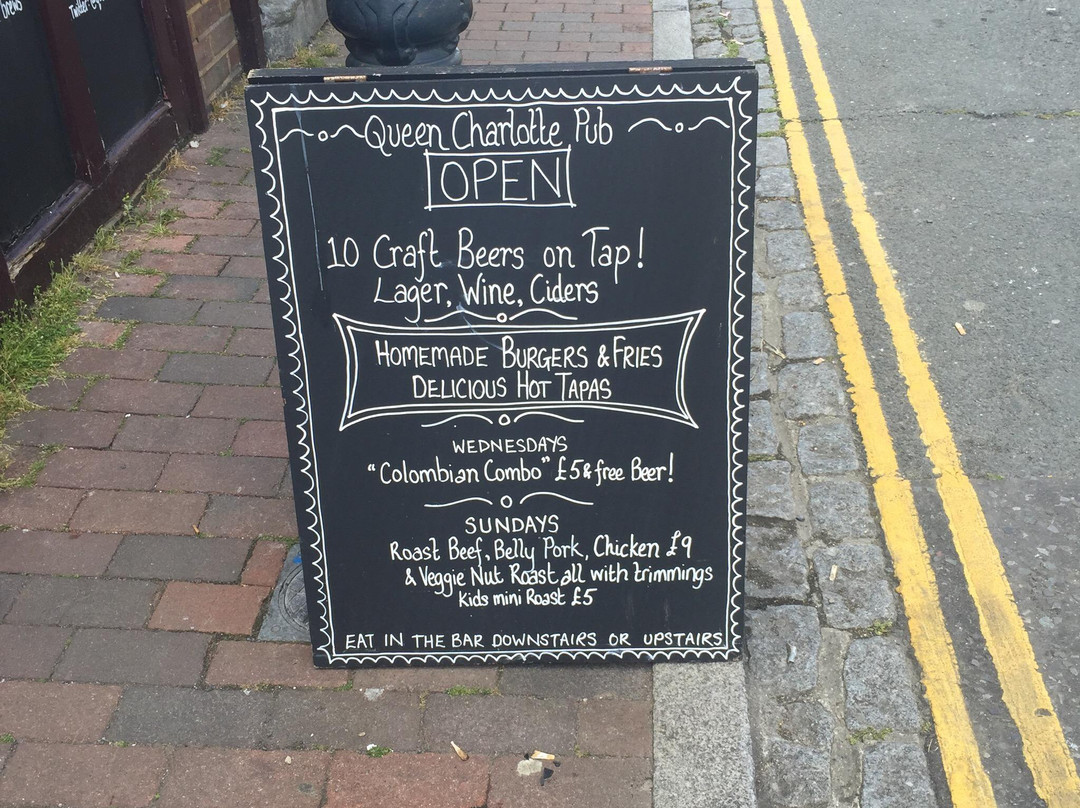 brews
Queen Charlotte Pub
OPEN
10 Craft Beers on Tap!
Lager, Wine, Ciders
HOMEMADE BURGERS & FRIES
DELICIOUS HOT TAPAS
WEDNESDAYS
"Colombian Combo" £5 & free Beer!
SUNDAYS
Roast Beef, Belly Pork, Chicken £9
& Veggie Nut Roast all with trimmings
Kids mini Roast £5
EAT IN THE BAR DOWNSTAIRS OR UPSTAIRS